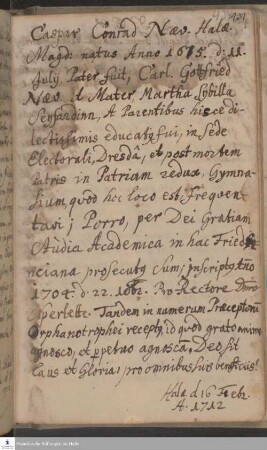 Caspar Conrad Næv. Hala
Magd: natus Anno 1685. d. 11.
July. Pater fuit, Carl. Gottfried
Næv. et Mater, Martha Sybilla
A Parentibus hisce di-
lectissimis educatq fui, in sede
Electorali, Dresdâ, et post mortem
Patris in Patriam redux, Gymna-
sium, quod hoc loco est, frequen-
tavi; Porro, per Dei Gratiam
Studia Academica in hac Fried
riciana prosecutq sum; inscriptq Ao
1704. d. 22. Rectore Dno
Tandem in numerum Præceptorũ
Orphanotrophei receptq, id quod grato animo
agnosco, et perpetuo agnoscã, Deo sit
Laus et Gloria, pro omnibus his beneficiis!
Hala d. 16 Febr.
A. 1712